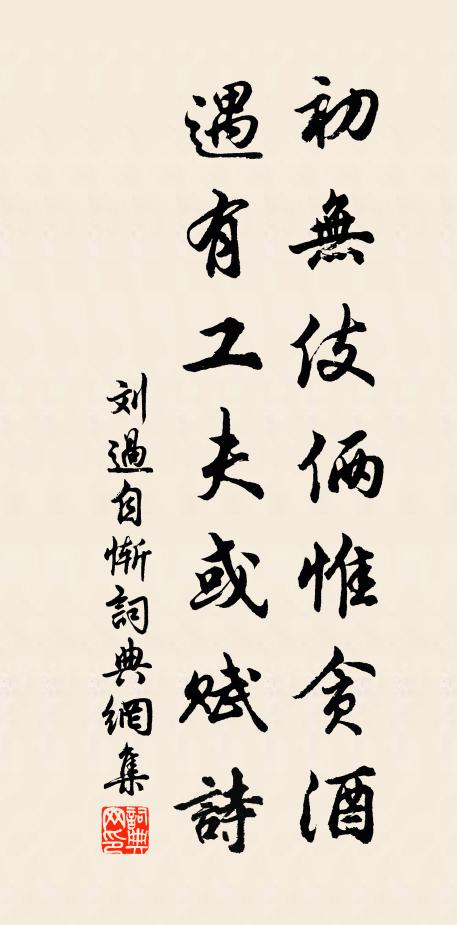 初無伎倆惟貪酒
遇有工夫或賦詩
刘過自慚詞典網集
詞典網印